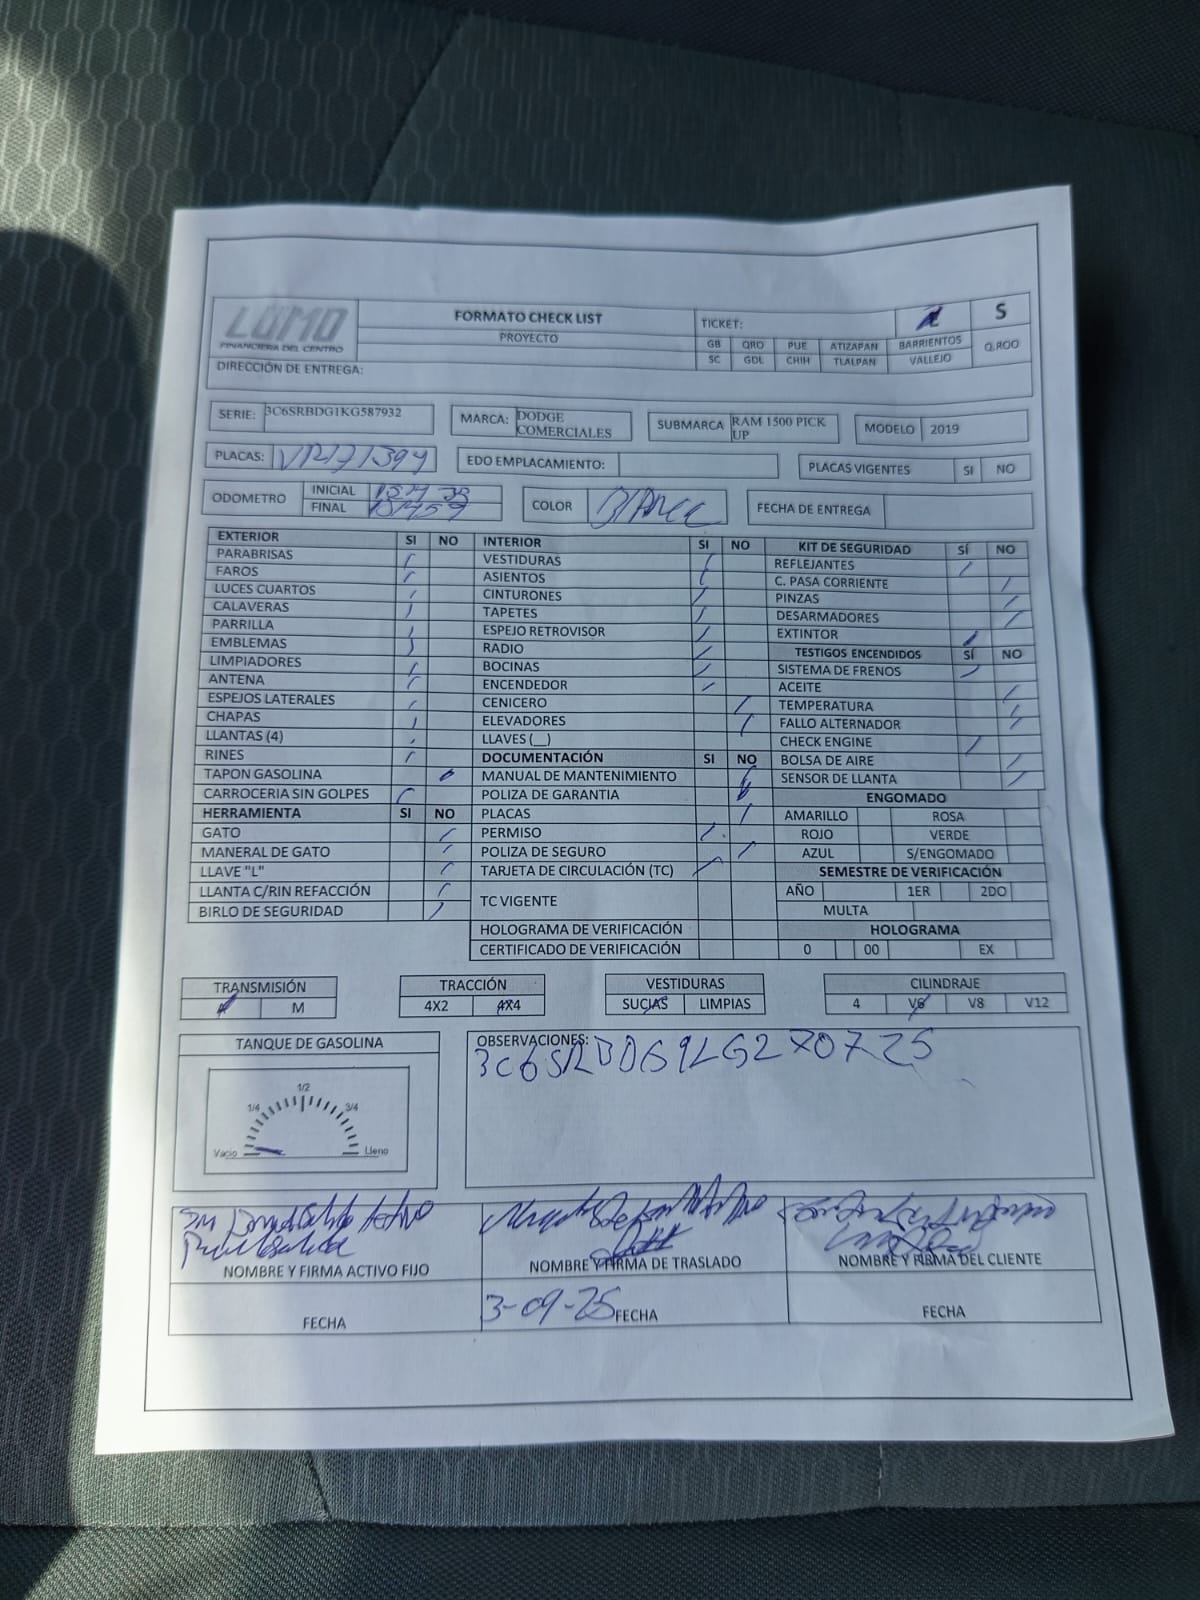 LUMO
FINANCIERA DEL CENTRO
FORMATO CHECK LIST
PROYECTO
TICKET:
S
GB QRO PUE ATIZAPAN BARRIENTOS
SC GDL CHIH TLALPAN VALLEJO
Q.ROO
DIRECCIÓN DE ENTREGA:
SERIE: 3C6SRBDG1KG587932
MARCA: DODGE COMERCIALES
SUBMARCA RAM 1500 PICK UP
MODELO 2019
PLACAS:
EDO EMPLACAMIENTO:
PLACAS VIGENTES SI NO
ODOMETRO INICIAL
FINAL
COLOR Blanco
FECHA DE ENTREGA
EXTERIOR SI NO
PARABRISAS
FAROS
LUCES CUARTOS
CALAVERAS
PARRILLA
EMBLEMAS
LIMPIADORES
ANTENA
ESPEJOS LATERALES
CHAPAS
LLANTAS (4)
RINES
TAPON GASOLINA
CARROCERIA SIN GOLPES
HERRAMIENTA SI NO
GATO
MANERAL DE GATO
LLAVE "L"
LLANTA C/RIN REFACCIÓN
BIRLO DE SEGURIDAD
INTERIOR SI NO
VESTIDURAS
ASIENTOS
CINTURONES
TAPETES
ESPEJO RETROVISOR
RADIO
BOCINAS
ENCENDEDOR
CENICERO
ELEVADORES
LLAVES (__)
DOCUMENTACIÓN SI NO
MANUAL DE MANTENIMIENTO
POLIZA DE GARANTIA
PLACAS
PERMISO
POLIZA DE SEGURO
TARJETA DE CIRCULACIÓN (TC)
TC VIGENTE
HOLOGRAMA DE VERIFICACIÓN
CERTIFICADO DE VERIFICACIÓN
KIT DE SEGURIDAD SÍ NO
REFLEJANTES
C. PASA CORRIENTE
PINZAS
DESARMADORES
EXTINTOR
TESTIGOS ENCENDIDOS SÍ NO
SISTEMA DE FRENOS
ACEITE
TEMPERATURA
FALLO ALTERNADOR
CHECK ENGINE
BOLSA DE AIRE
SENSOR DE LLANTA
ENGOMADO
AMARILLO ROSA
ROJO VERDE
AZUL S/ENGOMADO
SEMESTRE DE VERIFICACIÓN
AÑO 1ER 2DO
MULTA
HOLOGRAMA
0 00 EX
TRANSMISIÓN
A M
TRACCIÓN
4X2 4X4
VESTIDURAS
SUCIAS LIMPIAS
CILINDRAJE
4 V6 V8 V12
TANQUE DE GASOLINA
1/2
1/4 3/4
Vacio Lleno
OBSERVACIONES:
3C6SRBDG9LG270725
NOMBRE Y FIRMA ACTIVO FIJO
NOMBRE Y FIRMA DE TRASLADO
NOMBRE Y FIRMA DEL CLIENTE
FECHA
3-09-25 FECHA
FECHA